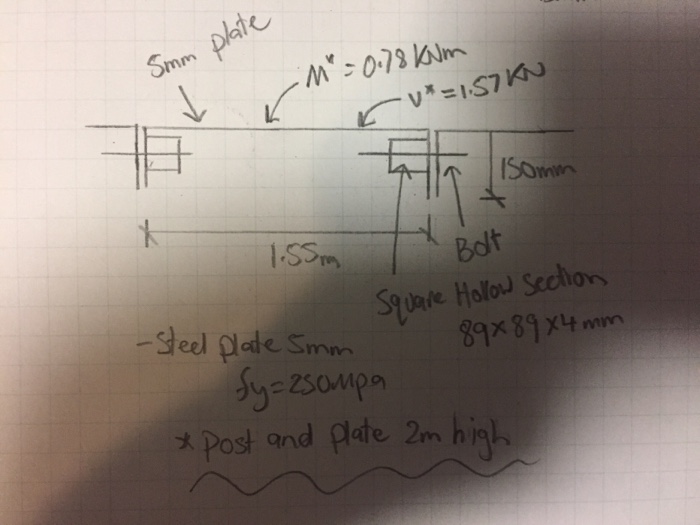 5mm plate
M* = 0.78 KNm
V* = 1.57 KN
150mm
1.55m
Bolt
Square Hollow Section
89x89x4mm
- Steel plate 5mm
fy=250Mpa
* Post and plate 2m high